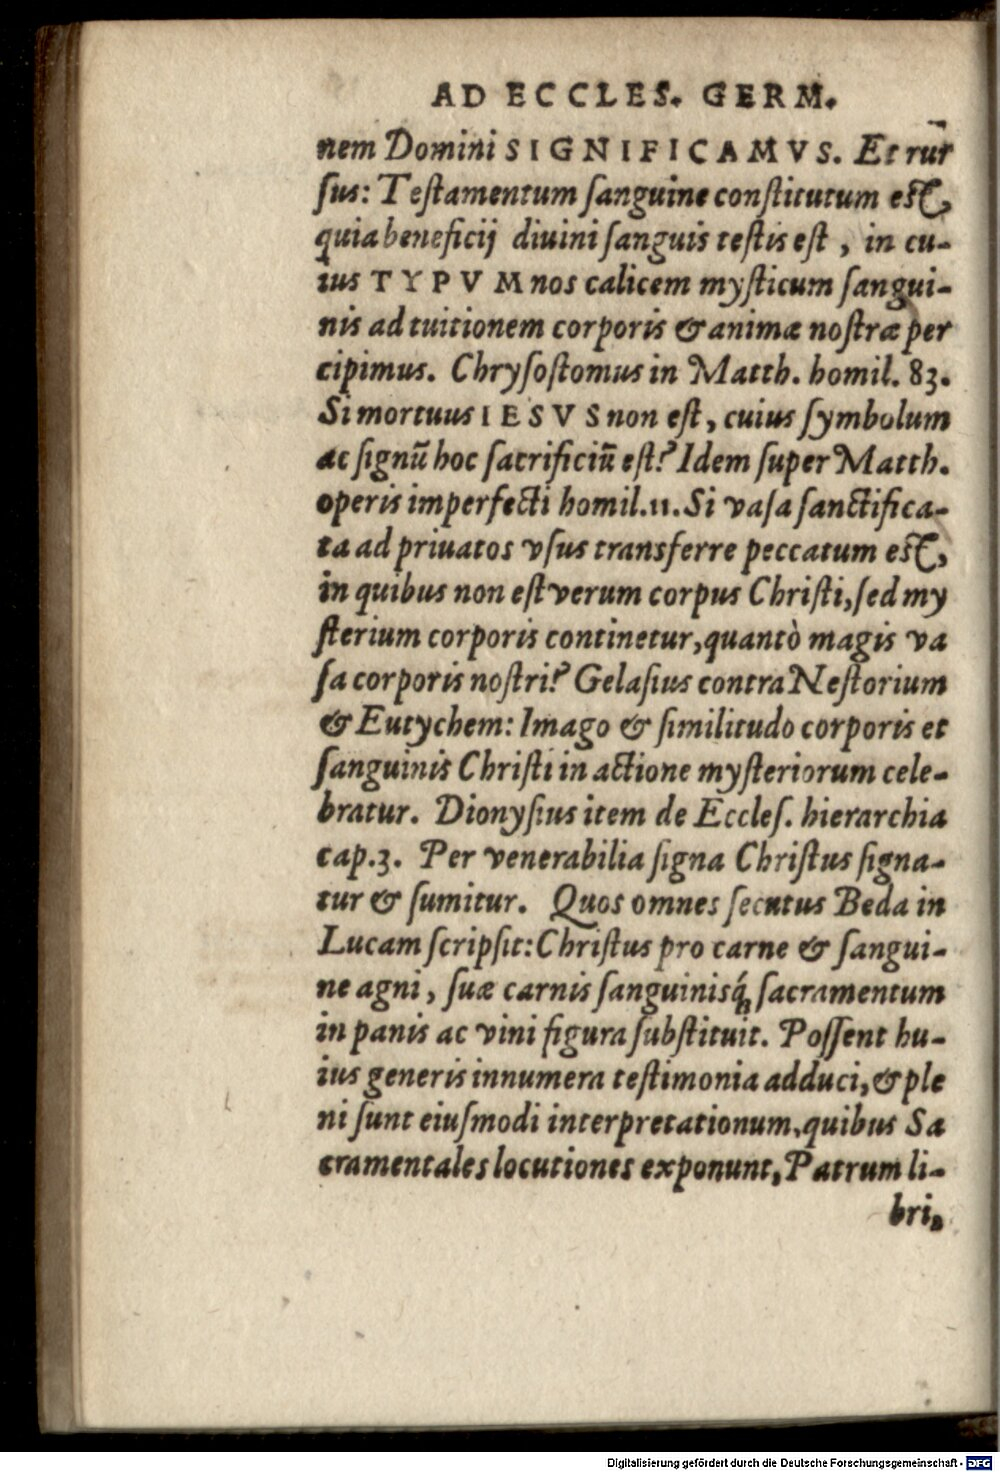 AD ECCLES. GERM.
nem Domini SIGNIFICAMVS. Et rur
ſus: Teſtamentum ſanguine conſtitutum eſt,
quia beneficij diuini ſanguis teſtis eſt, in cu-
ius TYPVM nos calicem myſticum ſangui-
nis ad tuitionem corporis & animæ noſtræ per
cipimus. Chryſoſtomus in Matth. homil. 83.
Si mortuus IESVS non eſt, cuius ſymbolum
ac ſignū hoc ſacrificiū eſt? Idem ſuper Matth.
operis imperfecti homil. 11. Si vaſa ſanctifica-
ta ad priuatos vſus transferre peccatum eſt,
in quibus non eſt verum corpus Chriſti, ſed my
ſterium corporis continetur, quantò magis va
ſa corporis noſtri? Gelaſius contra Neſtorium
& Eutychem: Imago & ſimilitudo corporis et
ſanguinis Chriſti in actione myſteriorum cele-
bratur. Dionyſius item de Eccleſ. hierarchia
cap. 3. Per venerabilia ſigna Chriſtus ſigna-
tur & ſumitur. Quos omnes ſecutus Beda in
Lucam ſcripſit: Chriſtus pro carne & ſangui-
ne agni, ſuæ carnis ſanguinisq́; ſacramentum
in panis ac vini figura ſubſtituit. Poſſent hu-
ius generis innumera teſtimonia adduci, & ple
ni ſunt eiuſmodi interpretationum, quibus Sa
cramentales locutiones exponunt, Patrum li-
bri,
Digitalisierung gefördert durch die Deutsche Forschungsgemeinschaft - DFG